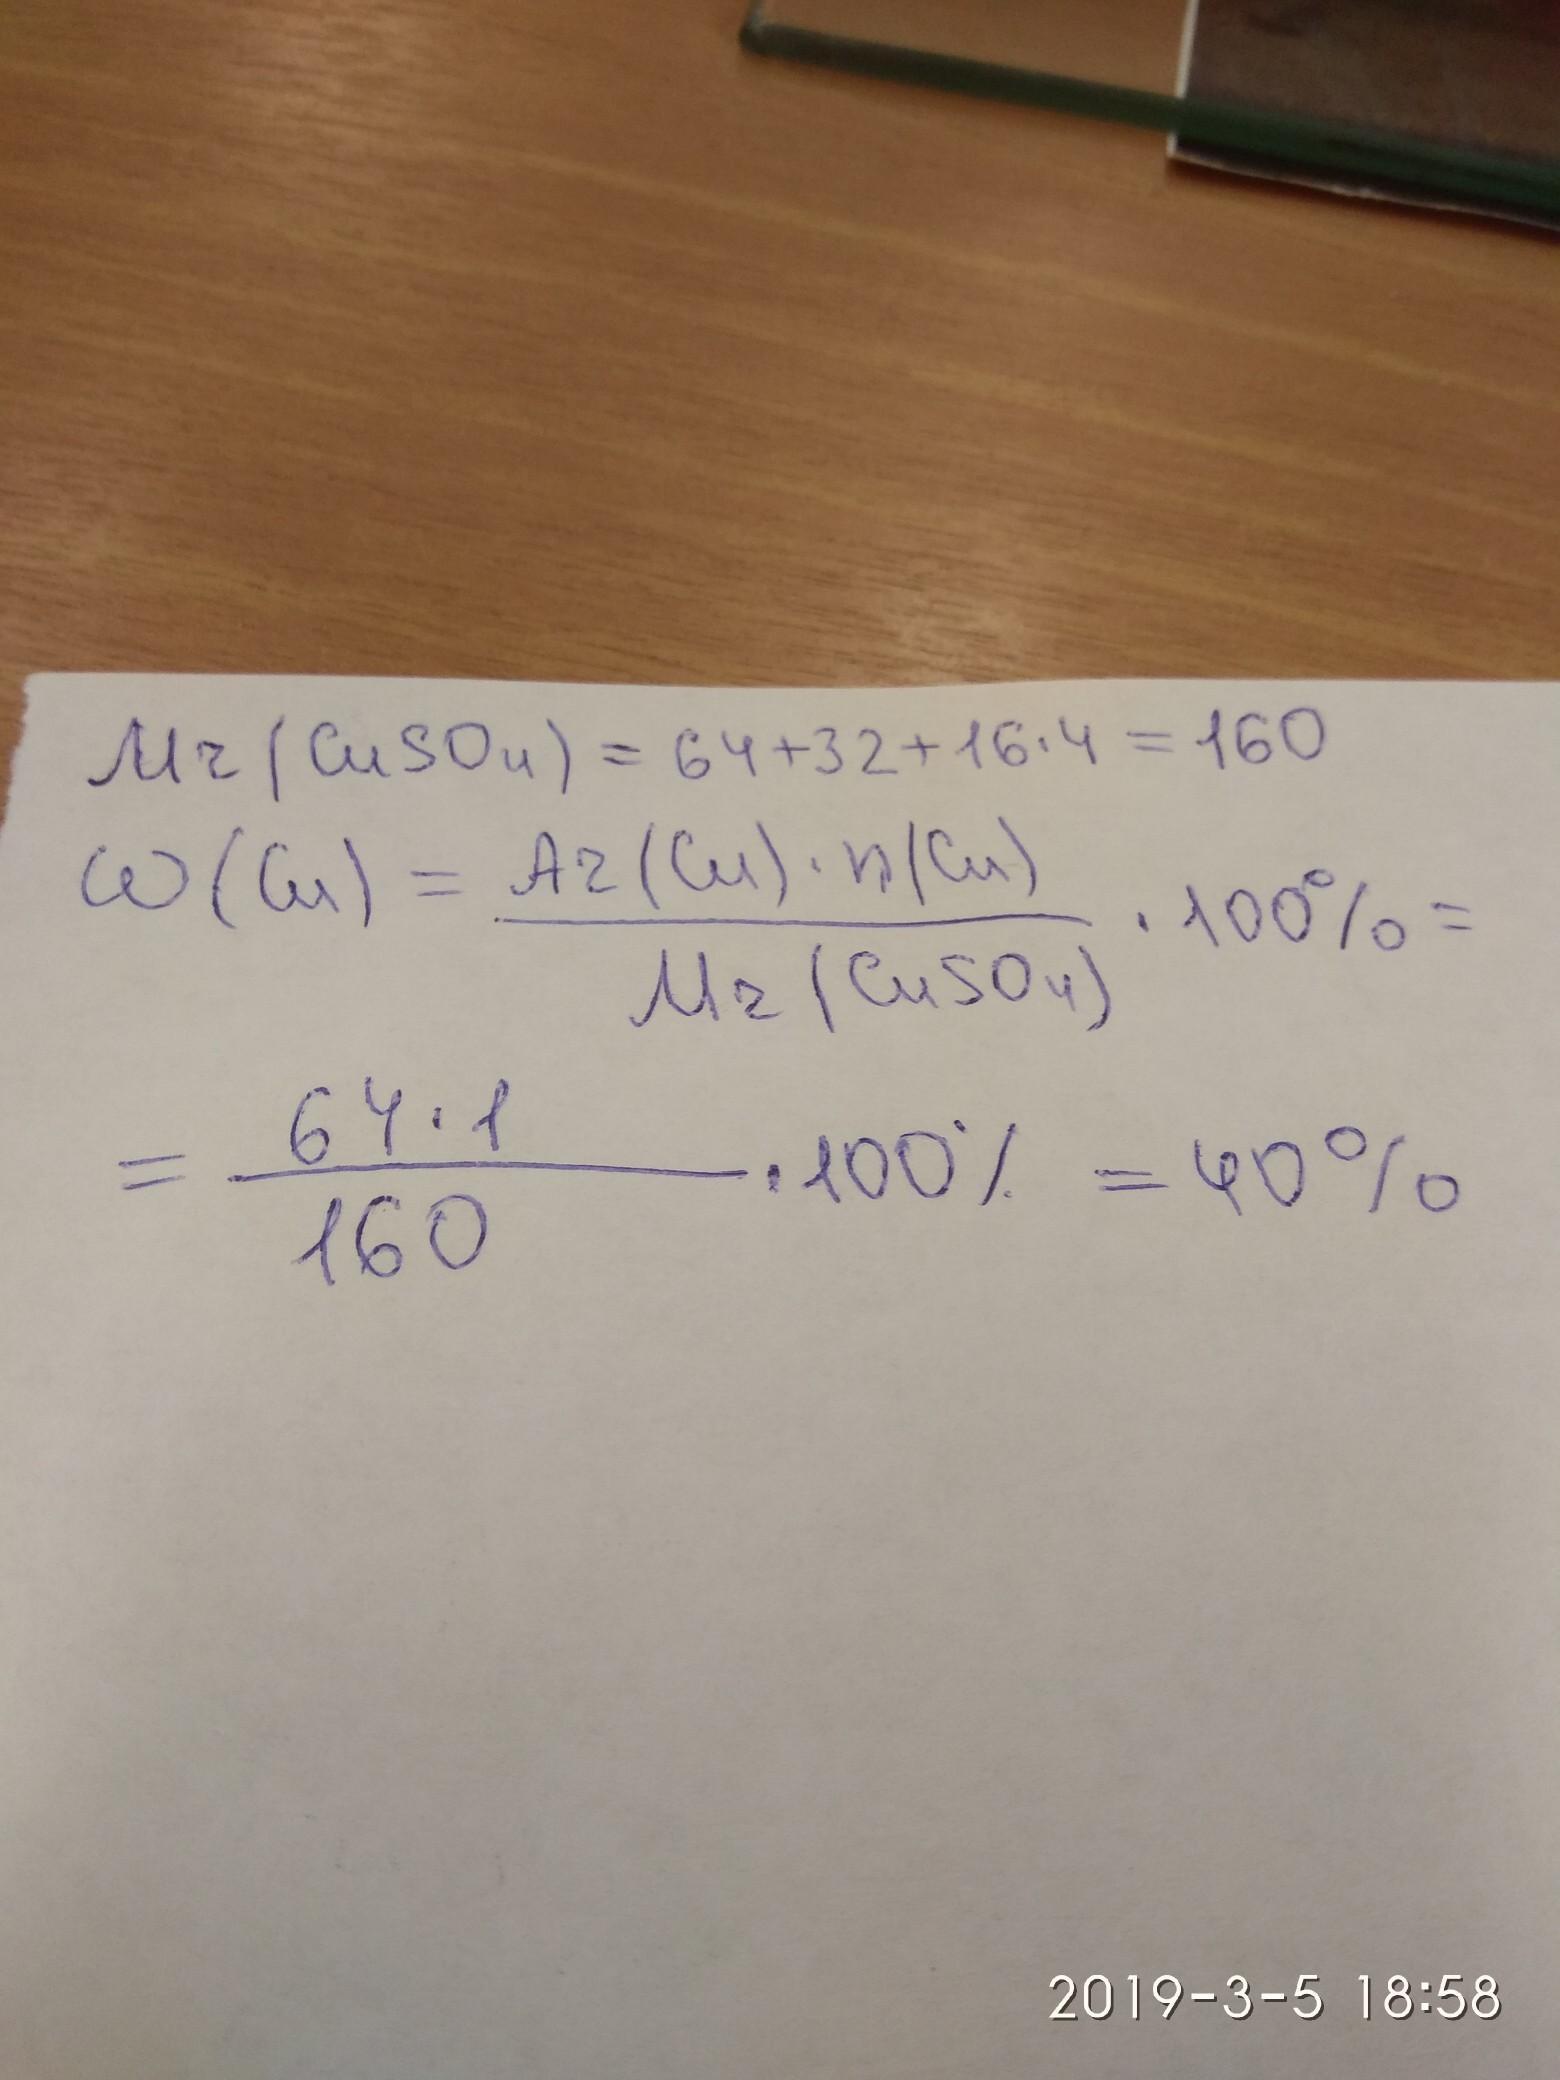 Mr(CuSO₄) = 64+32+16·4 = 160
ω(Cu) = Ar(Cu)·n(Cu) / Mr(CuSO₄) · 100% =
= 64·1 / 160 · 100% = 40%
2019-3-5 18:58